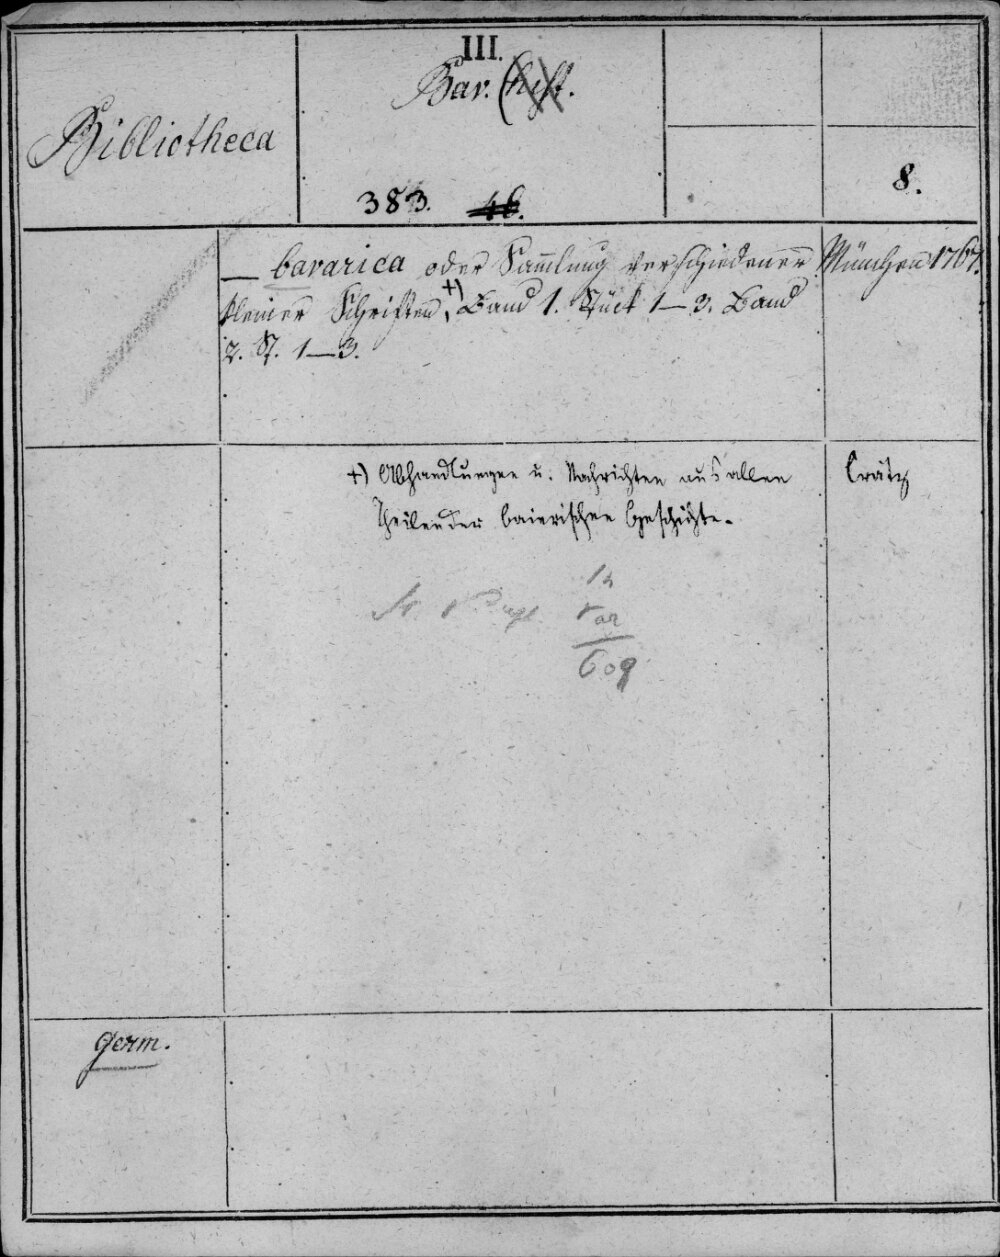 III.
Bav. (hist.
Bibliotheca
8.
383. 46.
— bavarica oder Sam̅lung verschiedener
kleiner Schriften, +) Band 1. Stück 1—3. Band
2. St. 1—3.
München 1767.
+) Abhandlungen u. Nachrichten aus allen
Theilen der baierischen Geschichte.
Crätz
609
germ.